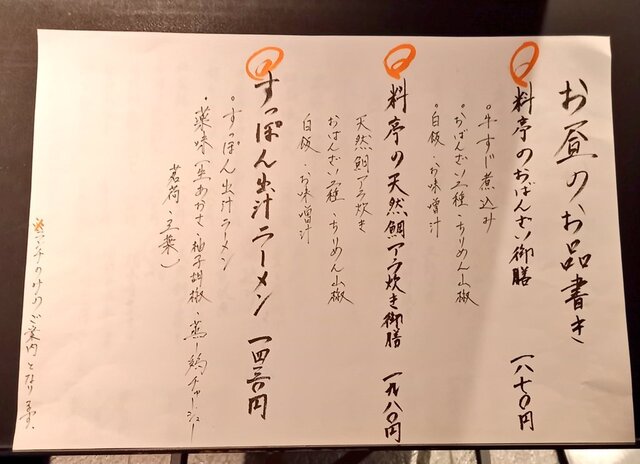 お昼のお品書き
料亭のおばんざい御膳 一八七〇円
・牛すじ煮込み
・おばんざい二種・ちりめん山椒
・白飯・お味噌汁
料亭の天然鯛アラ炊き御膳 一九八〇円
天然鯛アラ炊き
おばんざい二種・ちりめん山椒
白飯・お味噌汁
すっぽん出汁ラーメン 一四三〇円
・すっぽん出汁ラーメン
・薬味(生あおさ・柚子胡椒・蒸し鶏チャーシュー
茗荷・三葉)
のみのご案内となります。